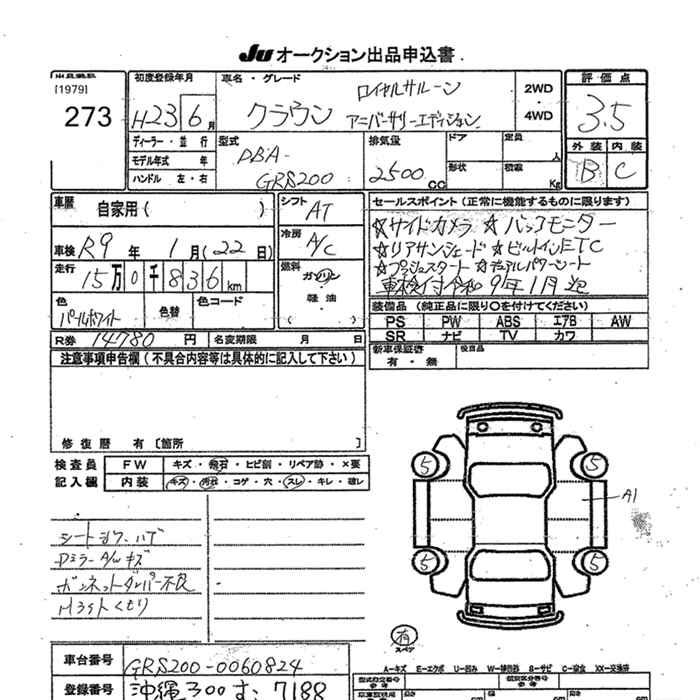 Ju オークション出品申込書
出品番号
[1979]
273
初度登録年月
H23 6月
ディーラー・並行
モデル年式 年
ハンドル 左・右
車名・グレード
クラウン
ロイヤルサルーン
アニバーサリーエディション
2WD
4WD
型式
DBA-
GRS200
排気量
2500cc
ドア
定員
人
形状
積載
Kg
評価点
3.5
外装 内装
B C
車歴
自家用( )
車検 R9年 1月(22日)
走行
15万0千836km
色
パールホワイト
色替
色コード
R券 14780円
名変期限 月 日
シフト
AT
冷房
A/C
燃料
ガソリン
軽油
( )
セールスポイント(正常に機能するものに限ります)
☆サイドカメラ ☆バックモニター
☆リアサンシェード ☆ビルトインETC
☆プッシュスタート ☆デュアルパワーシート
車検付令和9年1月迄
装備品(純正品に限り○を付けてください)
PS PW ABS エアB AW
SR ナビ TV カワ
新車保証書
有・無
後日品
注意事項申告欄(不具合内容等は具体的に記入して下さい)
修復歴 有[箇所 ]
検査員
記入欄
FW キズ・飛石・ヒビ割・リペア跡・×要
内装 キズ・汚れ・コゲ・穴・スレ・キレ・破レ
シートシワ・ハゲ
DミラーA/Wキズ
ボンネットダンパー不良
Hライトくもり
5
5
5
5
A1
有
スペア
車台番号
GRS200-0060824
登録番号
沖縄300 む 7188
A-キズ E-エクボ U-凹み W-補修跡 S-サビ C-腐食 XX-交換済
型式指定番号
参考
類別区分番号
参考